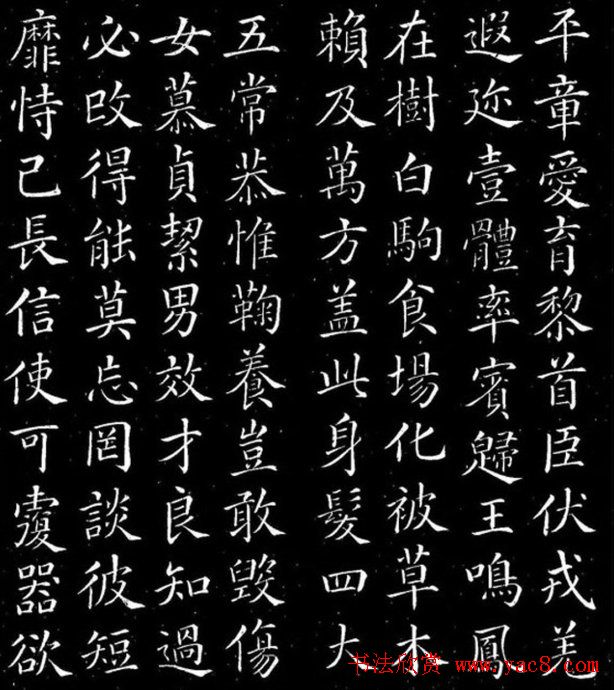 平章愛育黎首臣伏戎羌
遐迩壹體率賓歸王鳴鳳
在樹白駒食場化被草木
賴及萬方盖此身髮四大
五常恭惟鞠養豈敢毀傷
女慕貞絜男效才良知過
必改得能莫忘罔談彼短
靡恃己長信使可覆器欲
书法欣赏 www.yac8.com